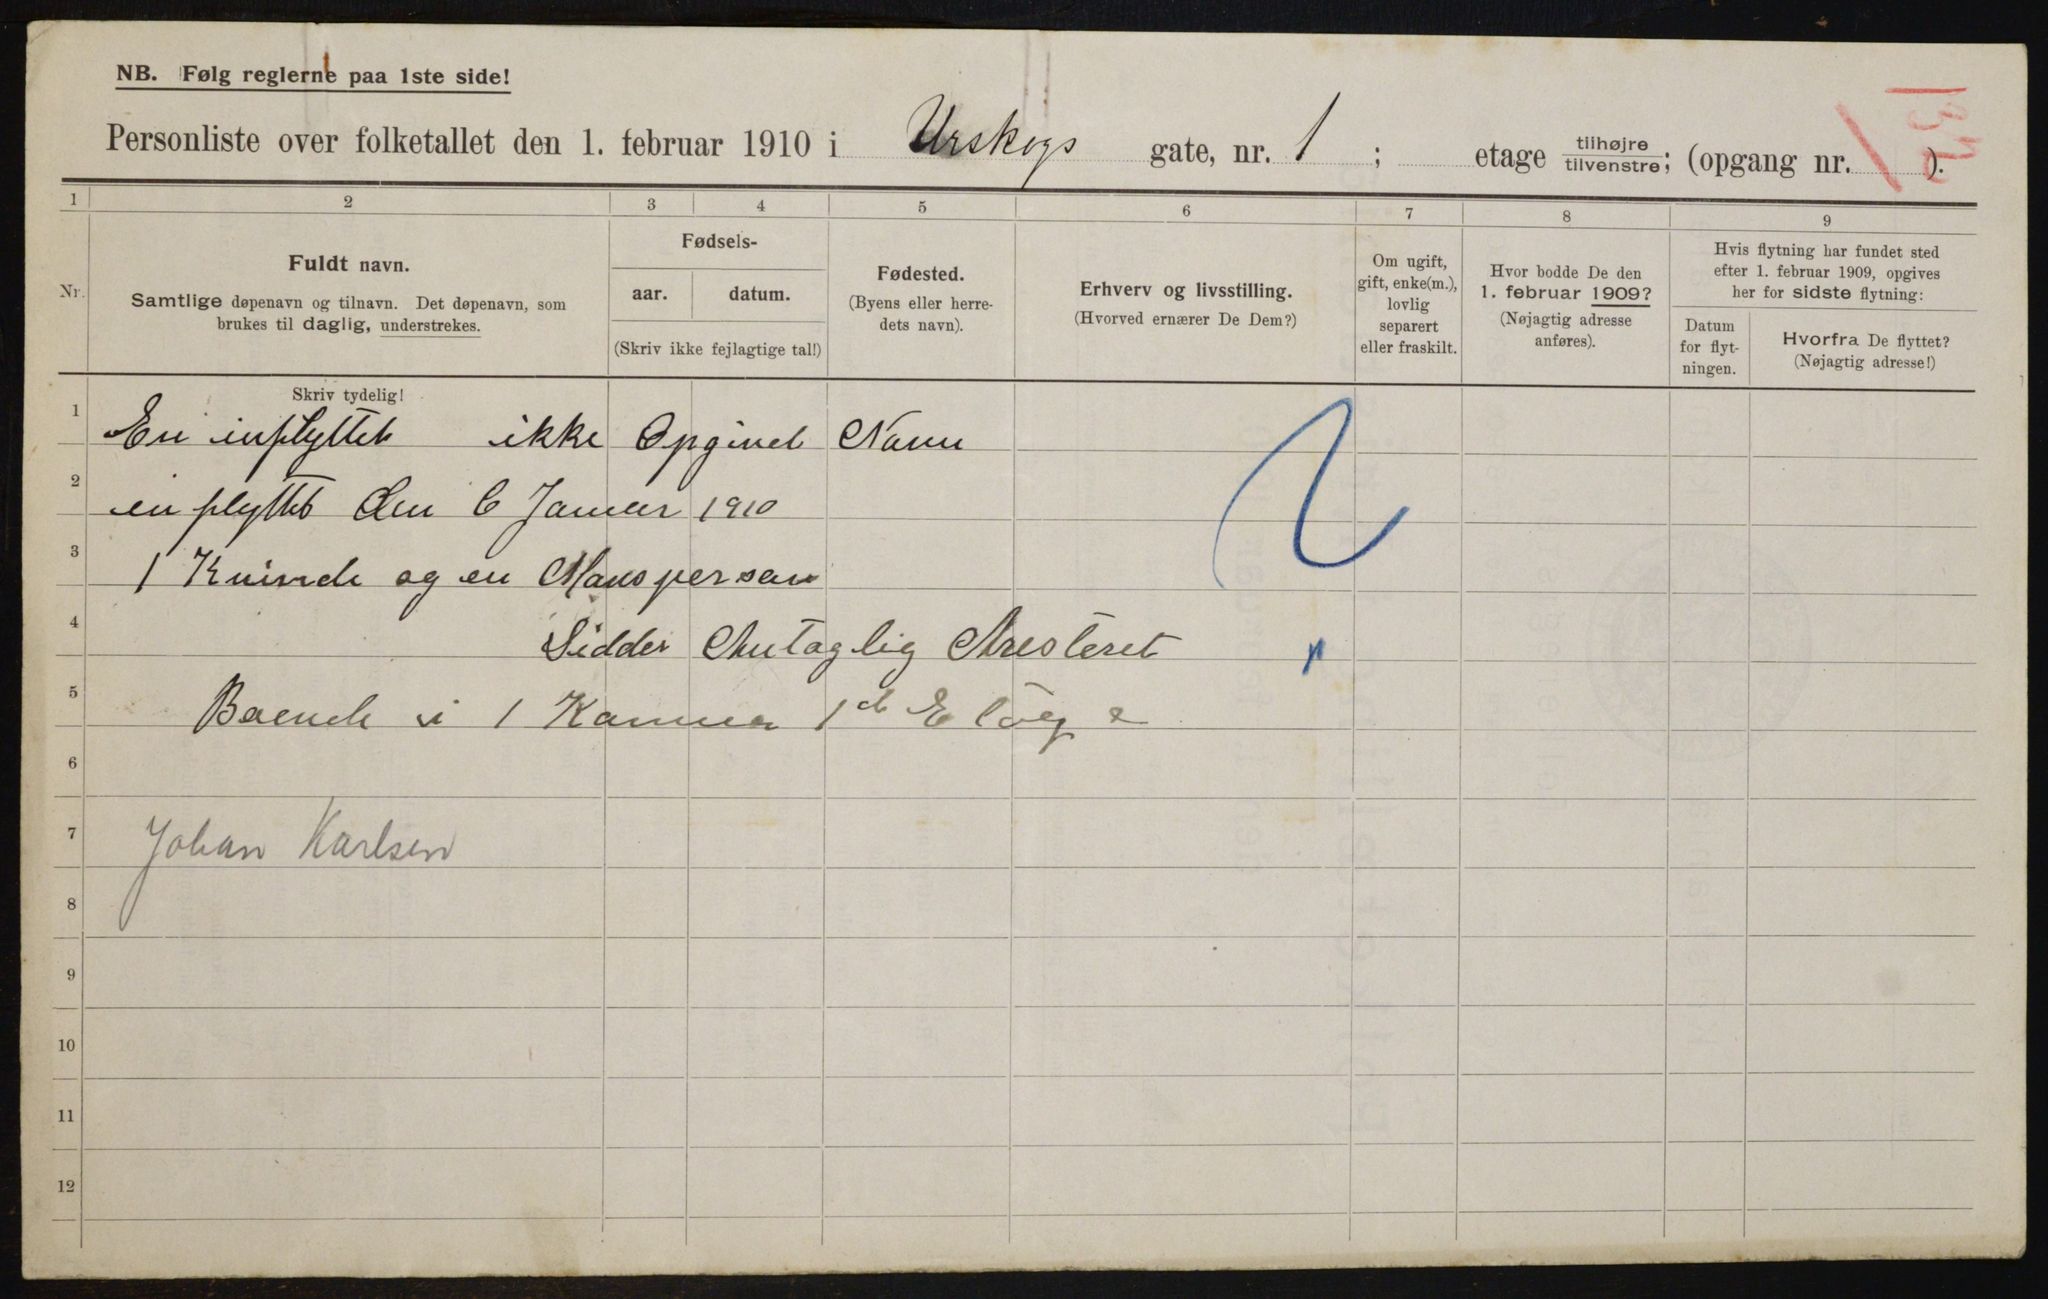 NB. Følg reglerne paa 1ste side!
Personliste over folketallet den 1. februar 1910 i Urskogs gate, nr. 1 ; etage tilhøjre/tilvenstre; (opgang nr. ).
1 2 3 4 5 6 7 8 9
Nr.
Fuldt navn.
Samtlige døpenavn og tilnavn. Det døpenavn, som
brukes til daglig, understrekes.
Fødsels-
aar. datum.
(Skriv ikke fejlagtige tal!)
Fødested.
(Byens eller herre-
dets navn).
Erhverv og livsstilling.
(Hvorved ernærer De Dem?)
Om ugift,
gift, enke(m.),
lovlig
separert
eller fraskilt.
Hvor bodde De den
1. februar 1909?
(Nøjagtig adresse
anføres).
Hvis flytning har fundet sted
efter 1. februar 1909, opgives
her for sidste flytning:
Datum
for flyt-
ningen.
Hvorfra De flyttet?
(Nøjagtig adresse!)
Skriv tydelig!
1 En inflyttet ikke Opgivet Navn
2 inflyttet den 6 Januar 1910
3 1 Kvinde og en Mansperson
4 Sidder Antaglig Aresteret
5 Boende i 1 Kammer 1 Etage
6
7 Johan Karlsen
8
9
10
11
12